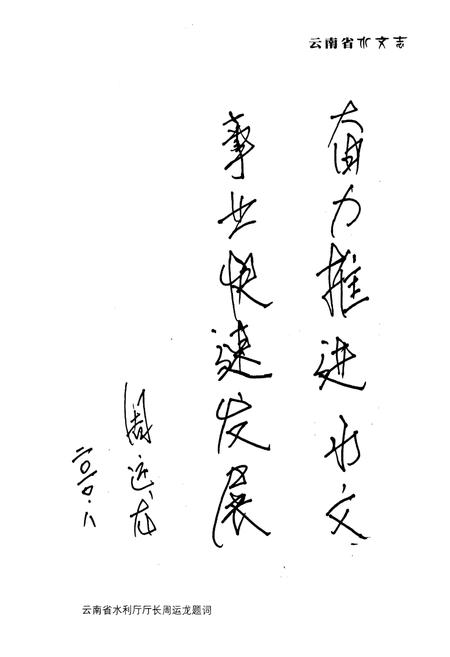 云南省水文志
奋力推进水文
事业快速发展
周运龙
二〇一〇.八
云南省水利厅厅长周运龙题词